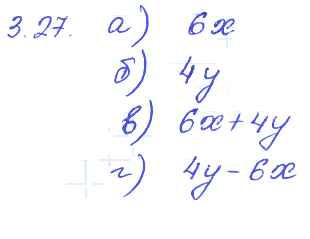 3.27. а) 6x
б) 4y
в) 6x + 4y
г) 4y - 6x